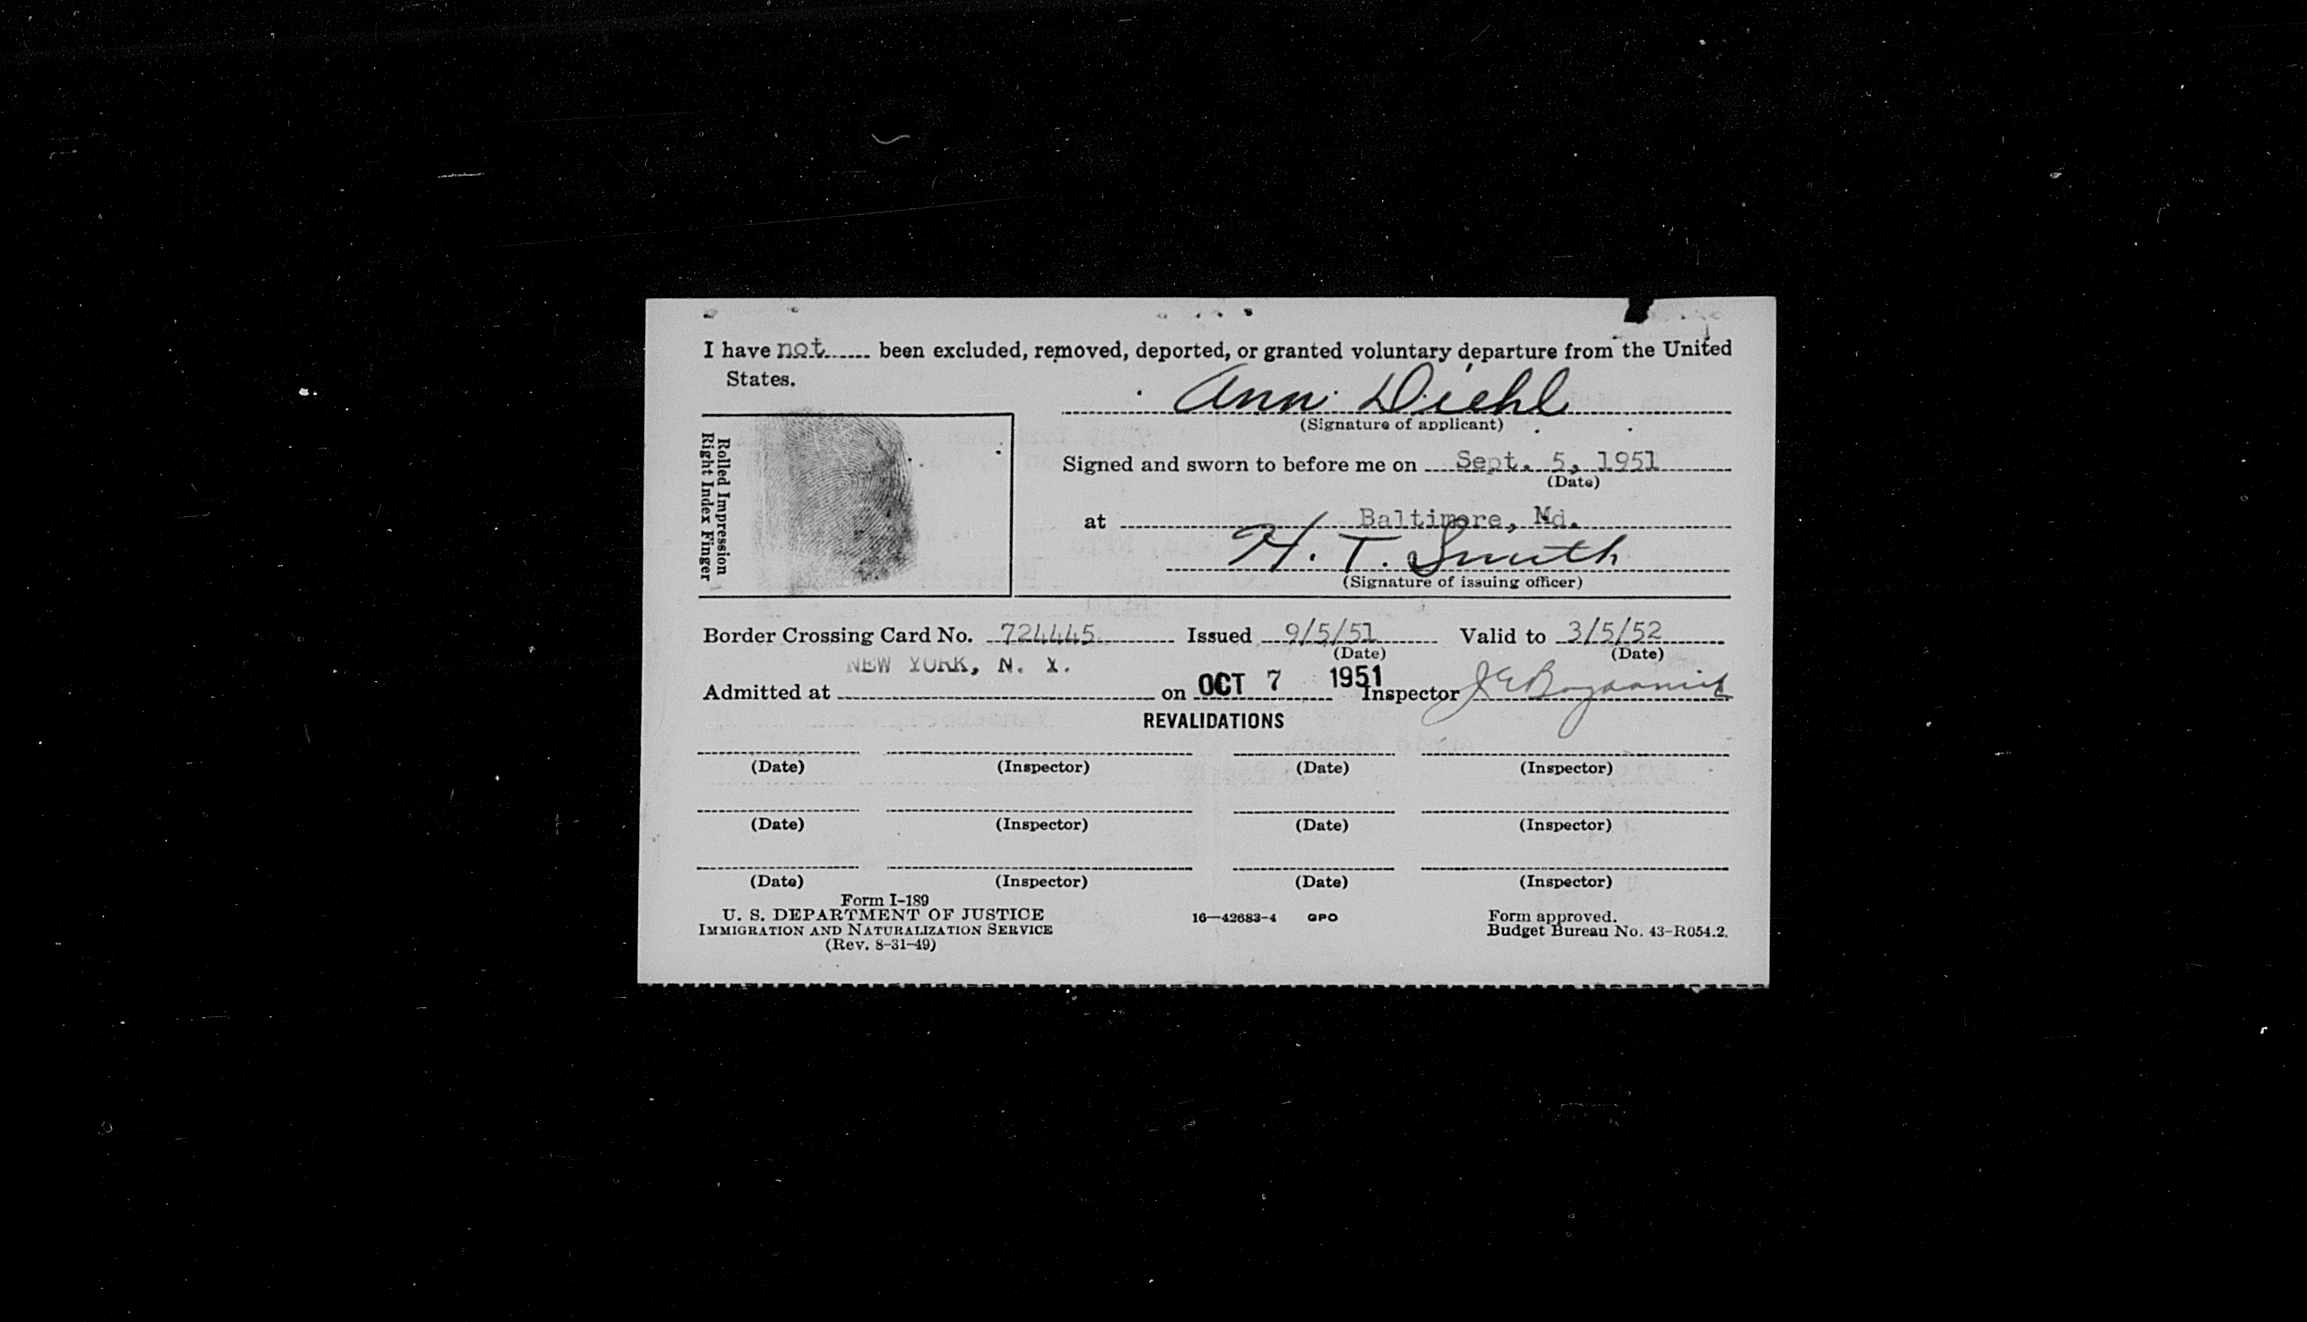 I have not been excluded, removed, deported, or granted voluntary departure from the United
States.
Ann Diehl
(Signature of applicant)
Rolled Impression
Right Index Finger
Signed and sworn to before me on Sept. 5, 1951
(Date)
at Baltimore, Md.
H. T. Smith
(Signature of issuing officer)
Border Crossing Card No. 724445 Issued 9/5/51 Valid to 3/5/52
(Date) (Date)
NEW YORK, N. Y.
Admitted at on OCT 7 1951 Inspector
REVALIDATIONS
(Date) (Inspector) (Date) (Inspector)
(Date) (Inspector) (Date) (Inspector)
(Date) (Inspector) (Date) (Inspector)
Form I-189
U. S. DEPARTMENT OF JUSTICE
IMMIGRATION AND NATURALIZATION SERVICE
(Rev. 8-31-49)
16—42683-4 GPO
Form approved.
Budget Bureau No. 43-R054.2.